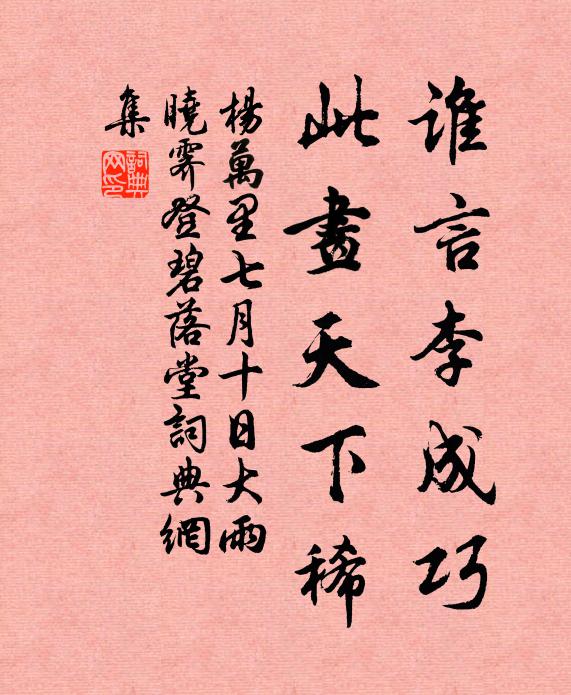 谁言李成巧
此畫天下稀
楊萬里七月十日大雨
曉霽登碧落堂詞典網
集
詞典
网印